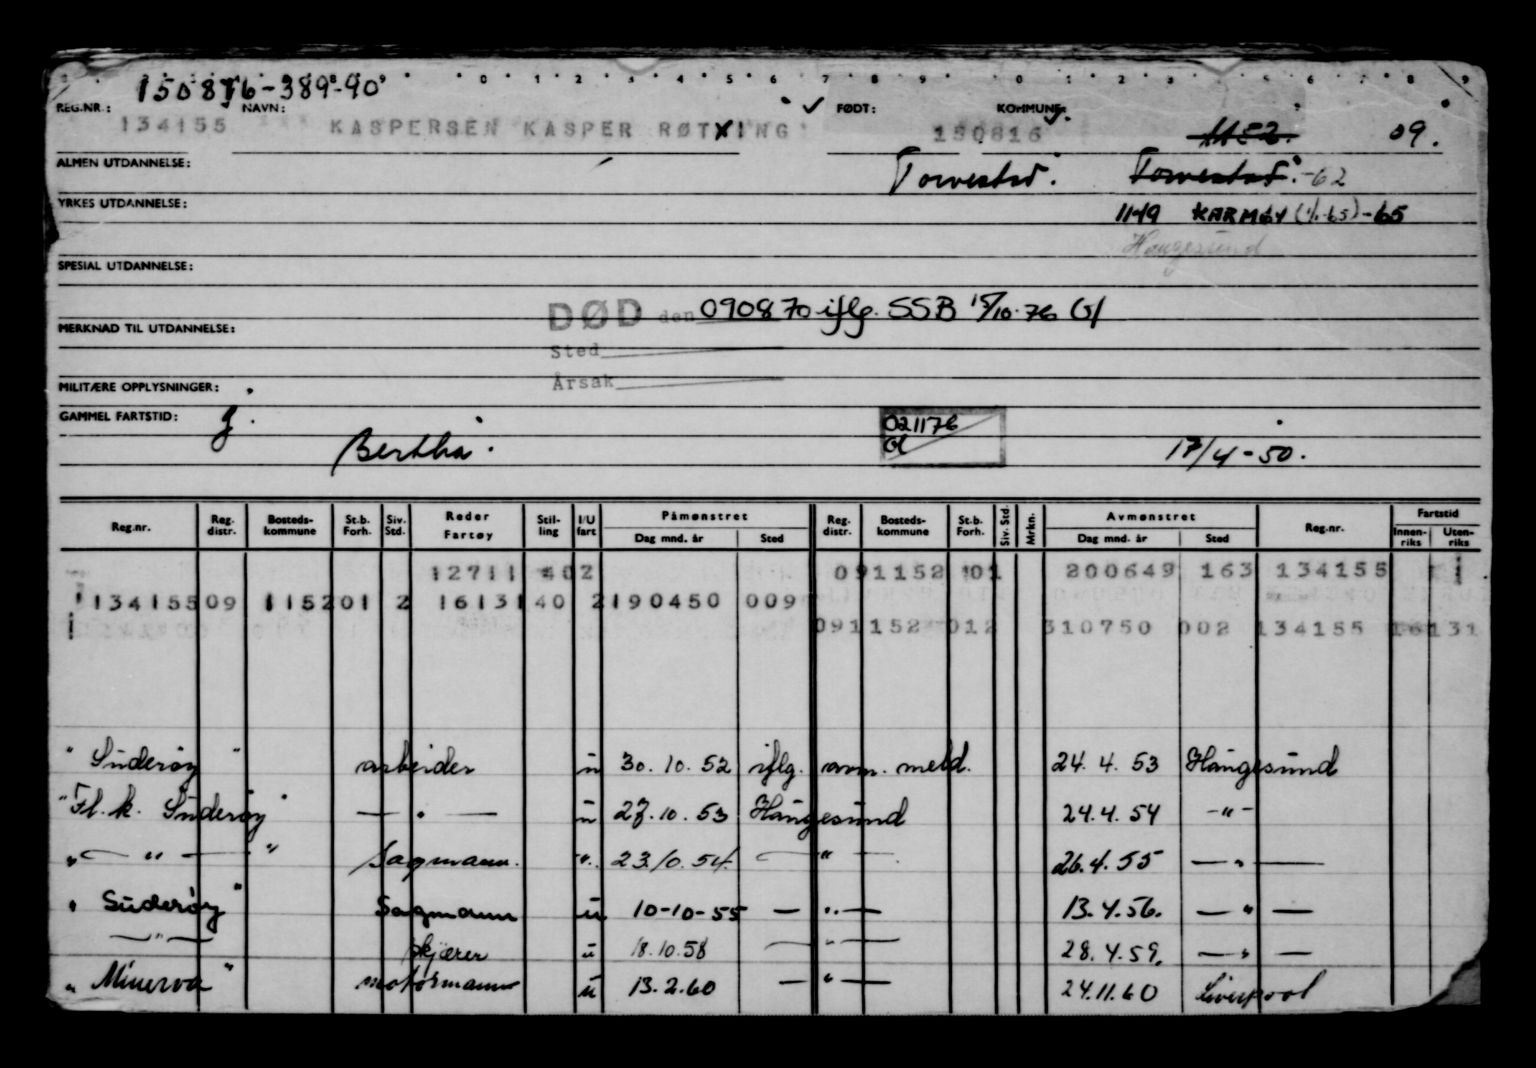 0 1 2 3 4 5 6 7 8 9 0 1 2 3 4 5 6 7 8 9
150816-389-90
REG.NR.: NAVN: FØDT: KOMMUNE:
134155 KASPERSEN KASPER RØTTING 150816 1152. 09.
ALMEN UTDANNELSE: Torvestad. Torvestad.-62
YRKES UTDANNELSE: 1149 KARMØY (1/1-65)-65
Haugesund
SPESIAL UTDANNELSE:
DØD den 090870 iflg. SSB 15/10-76
MERKNAD TIL UTDANNELSE:
Sted
Årsak
MILITÆRE OPPLYSNINGER:
GAMMEL FARTSTID: 021176
Bertha. 17/4-50.
Reg.nr. Reg. distr. Bosteds- kommune St.b. Forh. Siv. Std. Reder Fartøy Stil- ling I/U fart Påmønstret Reg. distr. Bosteds- kommune St.b. Forh. Siv. Std. Mrkn. Avmønstret Reg.nr. Fartstid
Dag mnd. år Sted Dag mnd. år Sted Innen- riks Uten- riks
12711 402 091152 101 200649 163 134155 1
134155 09 1152 01 2 16131 40 2 190450 009
091152 012 310750 002 134155 16131
"Suderøy" arbeider u 30.10.52 iflg. avm. meld. 24.4.53 Haugesund
"Fl.k. Suderøy" — " — u 27.10.53 Haugesund 24.4.54 -"-
" — " — " Sagmann. ". 23.10.54. — " — 26.4.55 — " —
" Suderøy" Sagmann u 10-10-55 — " — 13.4.56. — " —
— " — skjærer u 18.10.58 — " — 28.4.59. — " —
" Minerva" motormann u 13.2.60 — " — 24.11.60 Liverpool